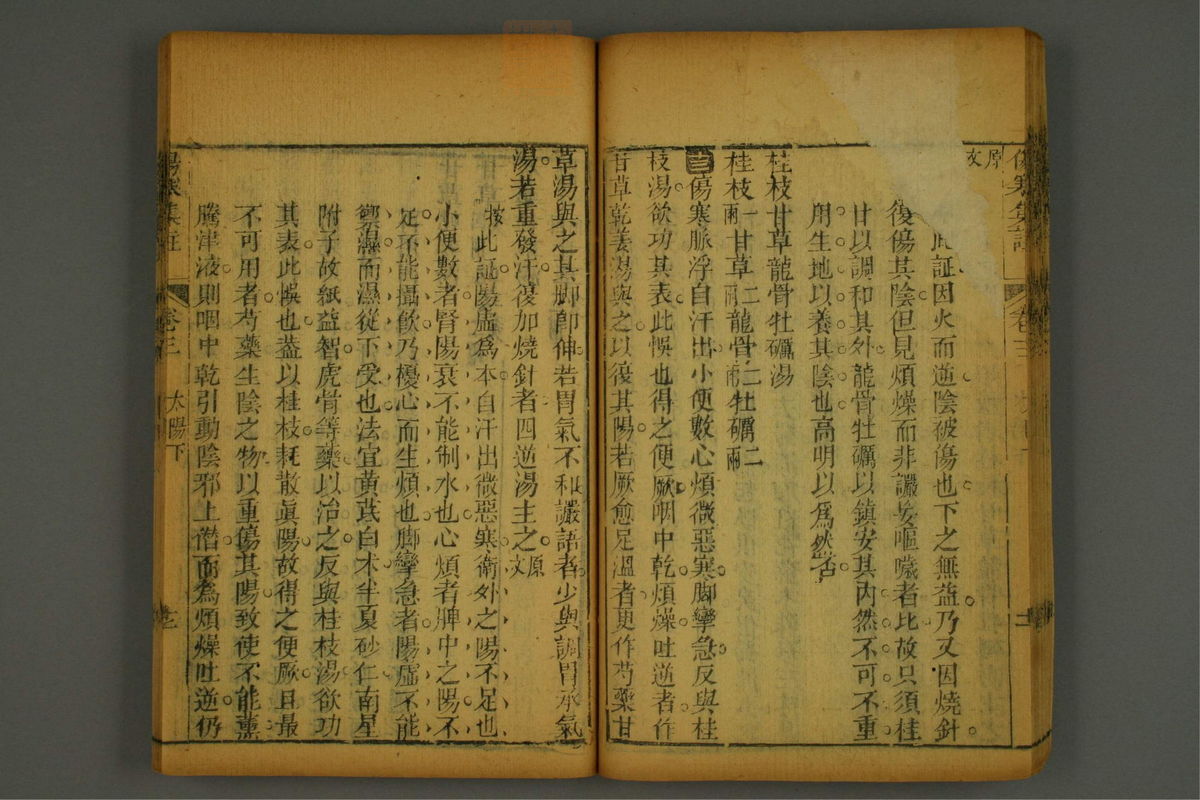 原文
此証因火而逆陰被傷也下之無益乃又因燒針
後傷其陰但見煩燥而非讝妄嘔噦者比故只須桂
甘以調和其外龍骨牡礪以鎮安其内然不可不重
用生地以養其陰也高明以為然否
桂枝甘草龍骨牡礪湯
桂枝一兩甘草二兩龍骨二兩牡礪二兩
傷寒脈浮自汗出小便數心煩微惡寒脚攣急反與桂
枝湯欲功其表此悞也得之便厥咽中乾煩燥吐逆者作
甘草乾姜湯與之以復其陽若厥愈足溫者更作芍藥甘
草湯與之其脚即伸若胃氣不和讝語者少與調胃承氣
湯若重發汗復加燒針者四逆湯主之原文
按此証陽虛為本自汗出微惡寒衛外之陽不足也
小便數者腎陽衰不能制水也心煩者脾中之陽不
足不能攝飲乃擾心而生煩也脚攣急者陽虛不能
禦濕而濕從下受也法宜黃茋白术半夏砂仁南星
附子故紙益智虎骨等藥以治之反與桂枝湯欲功
其表此悞也葢以桂枝耗散眞陽故得之便厥且最
不可用者芍藥生陰之物以重傷其陽致使不能薰
騰津液則咽中乾引動陰邪上僭而為煩燥吐逆仍
傷寒集註
卷三
太陽下